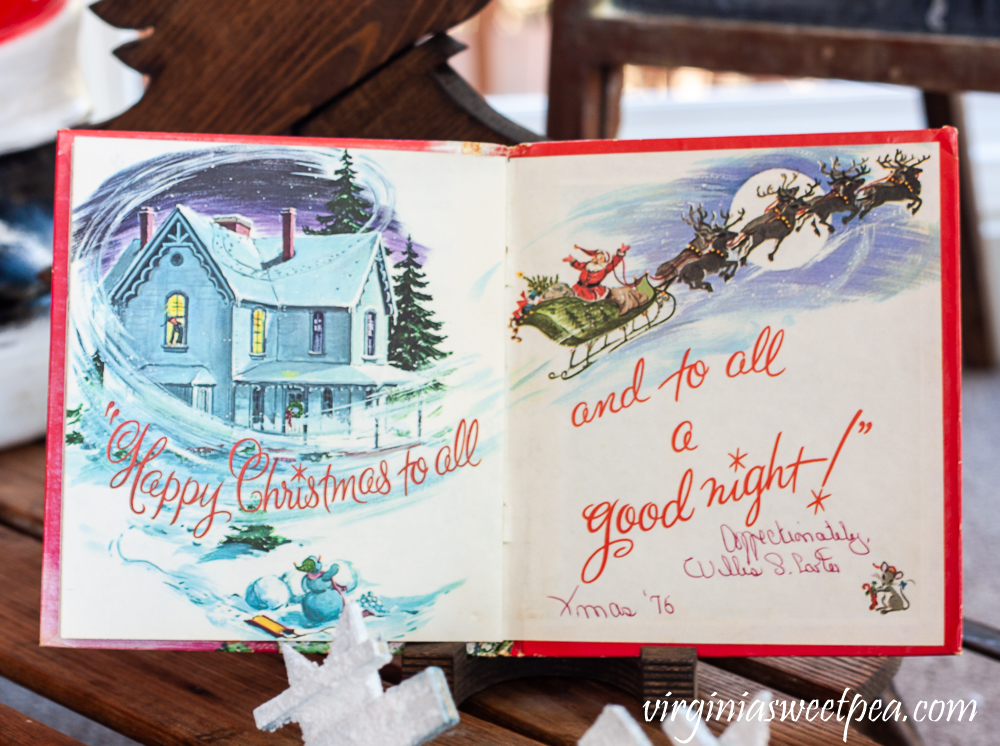 "Happy Christmas to all
and to all
a
good night!"
Affectionately,
Willis S.
Xmas '76
virginiasweetpea.com